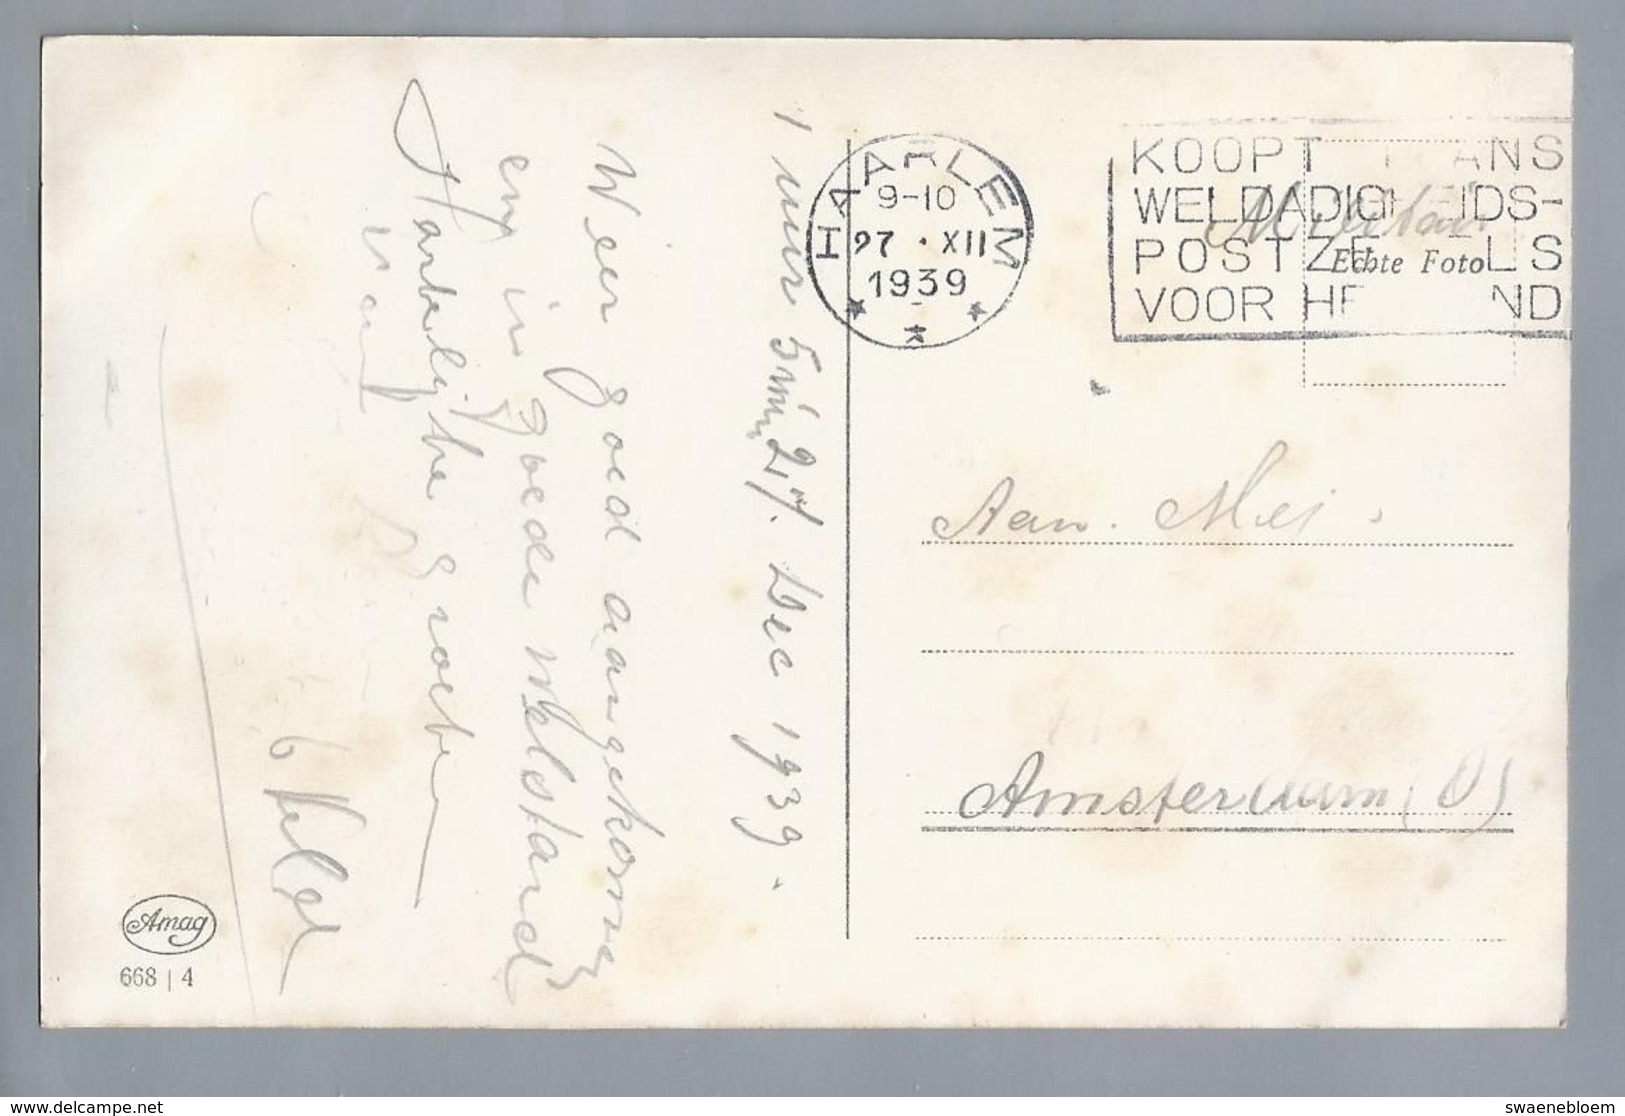 1 uur 5 min, 27 Dec 1939.
Weer goed aangekomen
en in goede welstand
Hartelijke groeten
van
HAARLEM
9-10
27 · XII
1939
KOOPT ANS
WELDADIGHEIDS-
POSTZE LS
VOOR HE ND
Militair
Echte Foto
Aan. Mej.
Amsterdam (O)
Amag
668 | 4
www.delcampe.net
swaenebloem